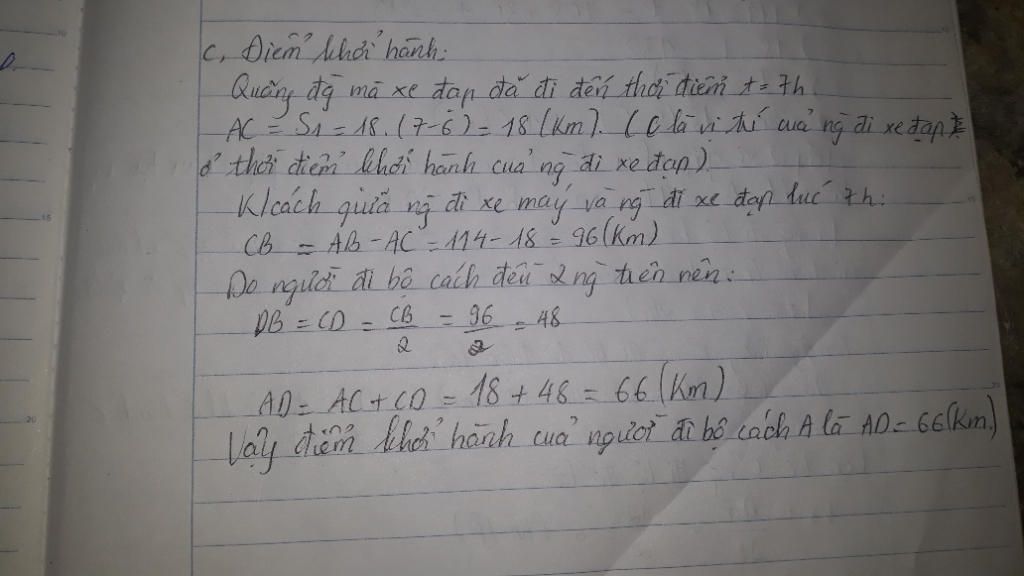 c, Điểm khởi hành:
Quãng đg mà xe đạp đã đi đến thời điểm t = 7h
AC = S1 = 18. (7-6) = 18 (Km). (C là vị trí của ng đi xe đạp
ở thời điểm khởi hành của ng đi xe đạp)
K/cách giữa ng đi xe máy và ng đi xe đạp lúc 7h:
CB = AB - AC = 114 - 18 = 96 (Km)
Do người đi bộ cách đều 2 ng trên nên:
DB = CD = CB/2 = 96/2 = 48
AD = AC + CD = 18 + 48 = 66 (Km)
Vậy điểm khởi hành của người đi bộ cách A là AD = 66 (Km)